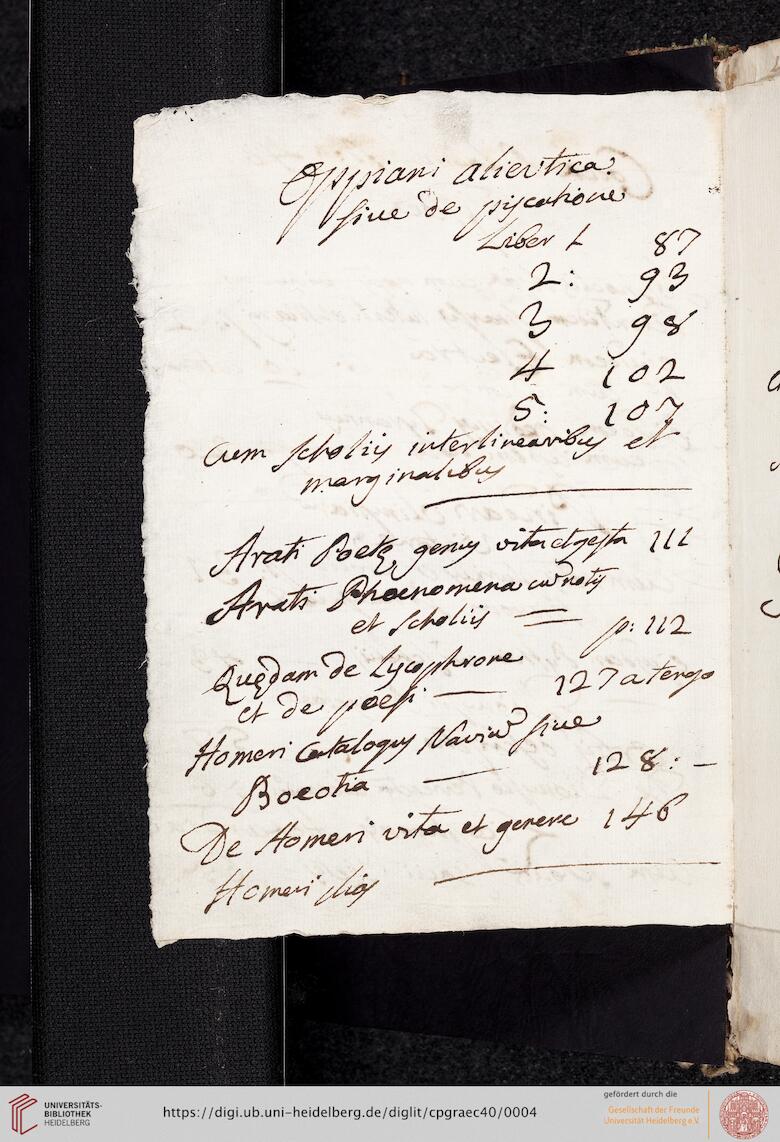 Oppiani alieutica.
siue de piscatione
Liber 1. 87
2: 93
3 98
4 102
5: 107
cum scholijs interlinearibus et
marginalibus
Arati Poetę genus vita et gesta 111
Arati Phoenomena cū notis
et scholiis p: 112
Quędam de Lycophrone
et de poesi 127 a tergo
Homeri Catalogus Naviū siue
Boeotia 128: –
De Homeri vita et genere 146
Homeri ilias
UNIVERSITÄTS-
BIBLIOTHEK
HEIDELBERG
https://digi.ub.uni-heidelberg.de/diglit/cpgraec40/0004
gefördert durch die
Gesellschaft der Freunde
Universität Heidelberg e.V.